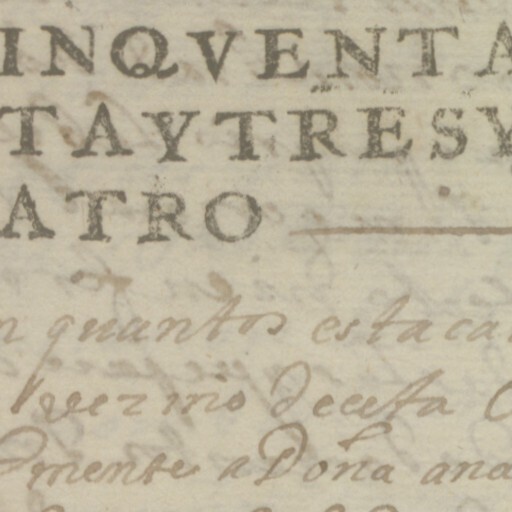 INQVENTA
TAYTRESY
ATRO
n quantos esta ca
vezino de esta C
mente a Doña ana